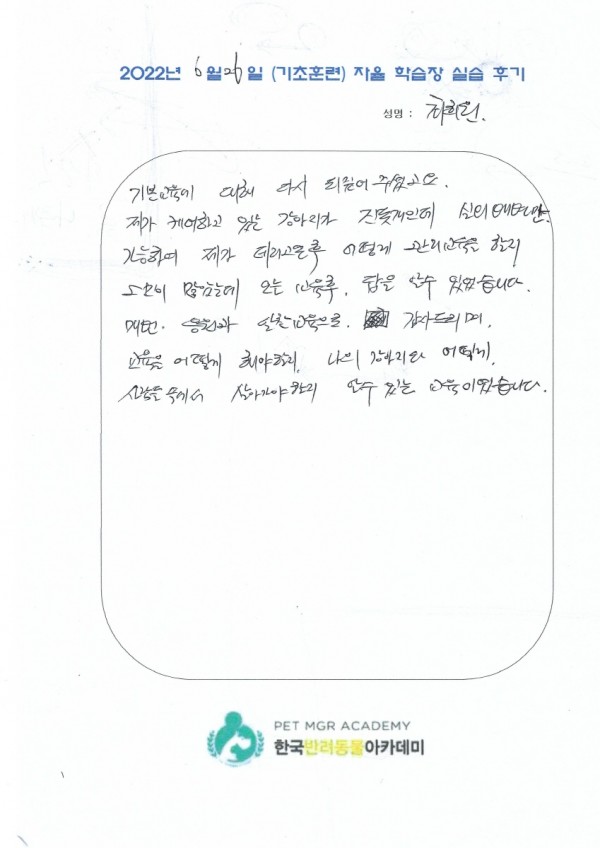 2022년 6월 26일 (기초훈련) 자율 학습장 실습 후기
성명 : 최희원.
기본교육에 대해 다시 되짚어 주셨고요.
제가 케어하고 있는 강아지가 진돗개인데
가능하여 제가 어떻게 교육을 할지
고민이 많았는데 오늘 교육후, 답을 알수 있었습니다.
매번 응원과 알찬교육으로. 감사드리며,
교육을 어떻게 해야할지, 나의 강아지와 어떻게,
사람들 속에서 살아가야할지 알수 있는 교육이었습니다.
PET MGR ACADEMY
한국반려동물아카데미